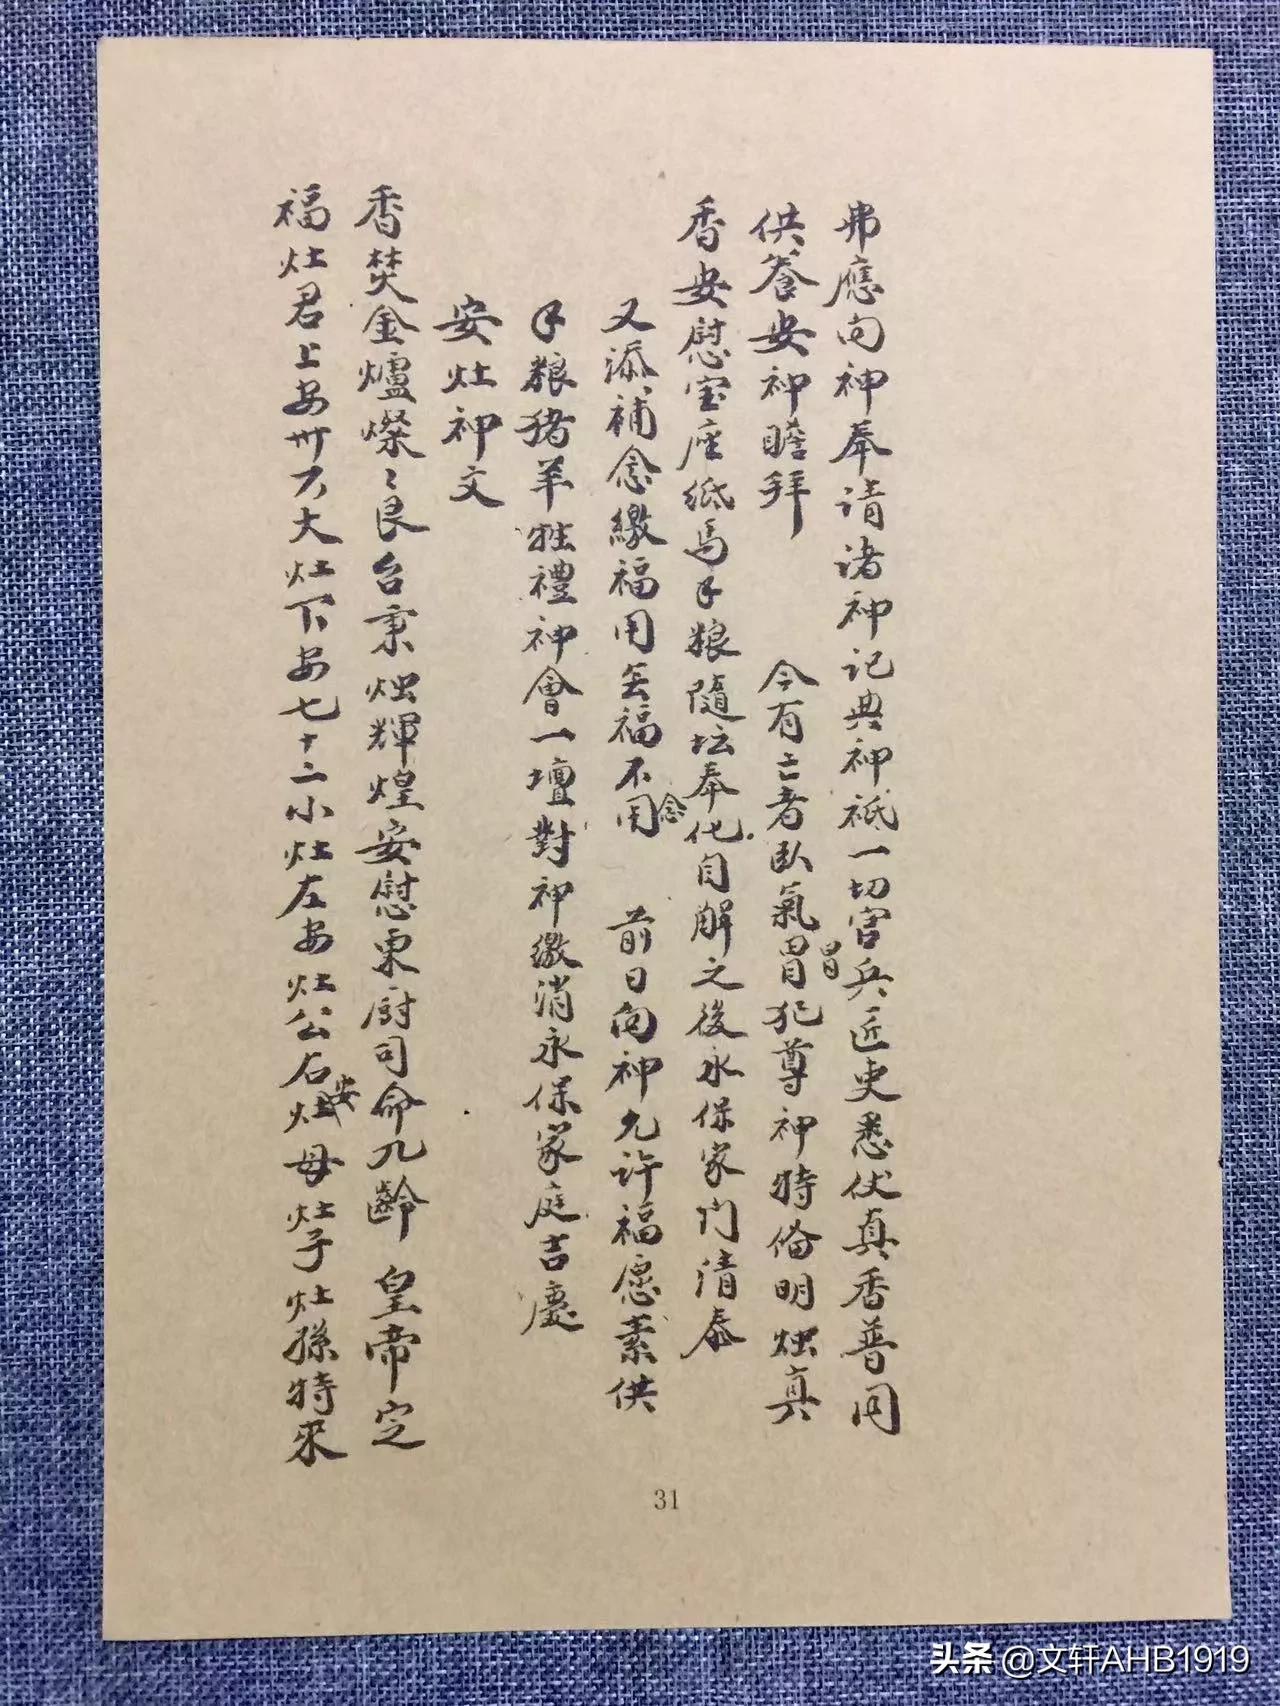 弗應向神奉请诸神记典神祗一切官兵匠吏悉仗真香普同
供养安神瞻拜　今有亡者臥氣冒犯尊神特俻明烛真
香安慰宝座纸馬手粮隨坛奉化自解之後永保家门清泰
又添補念繳福用丢福不用念　前日向神允许福愿素供
手粮猪羊牲禮神會一壇對神繳消永保家庭吉慶
安灶神文
香焚金爐燦〻良台秉烛輝煌安慰東厨司命九齡　皇帝定
福灶君上安卅六大灶下安七十二小灶左安灶公右安灶母灶子灶孫特來
31
头条 @文轩AHB1919